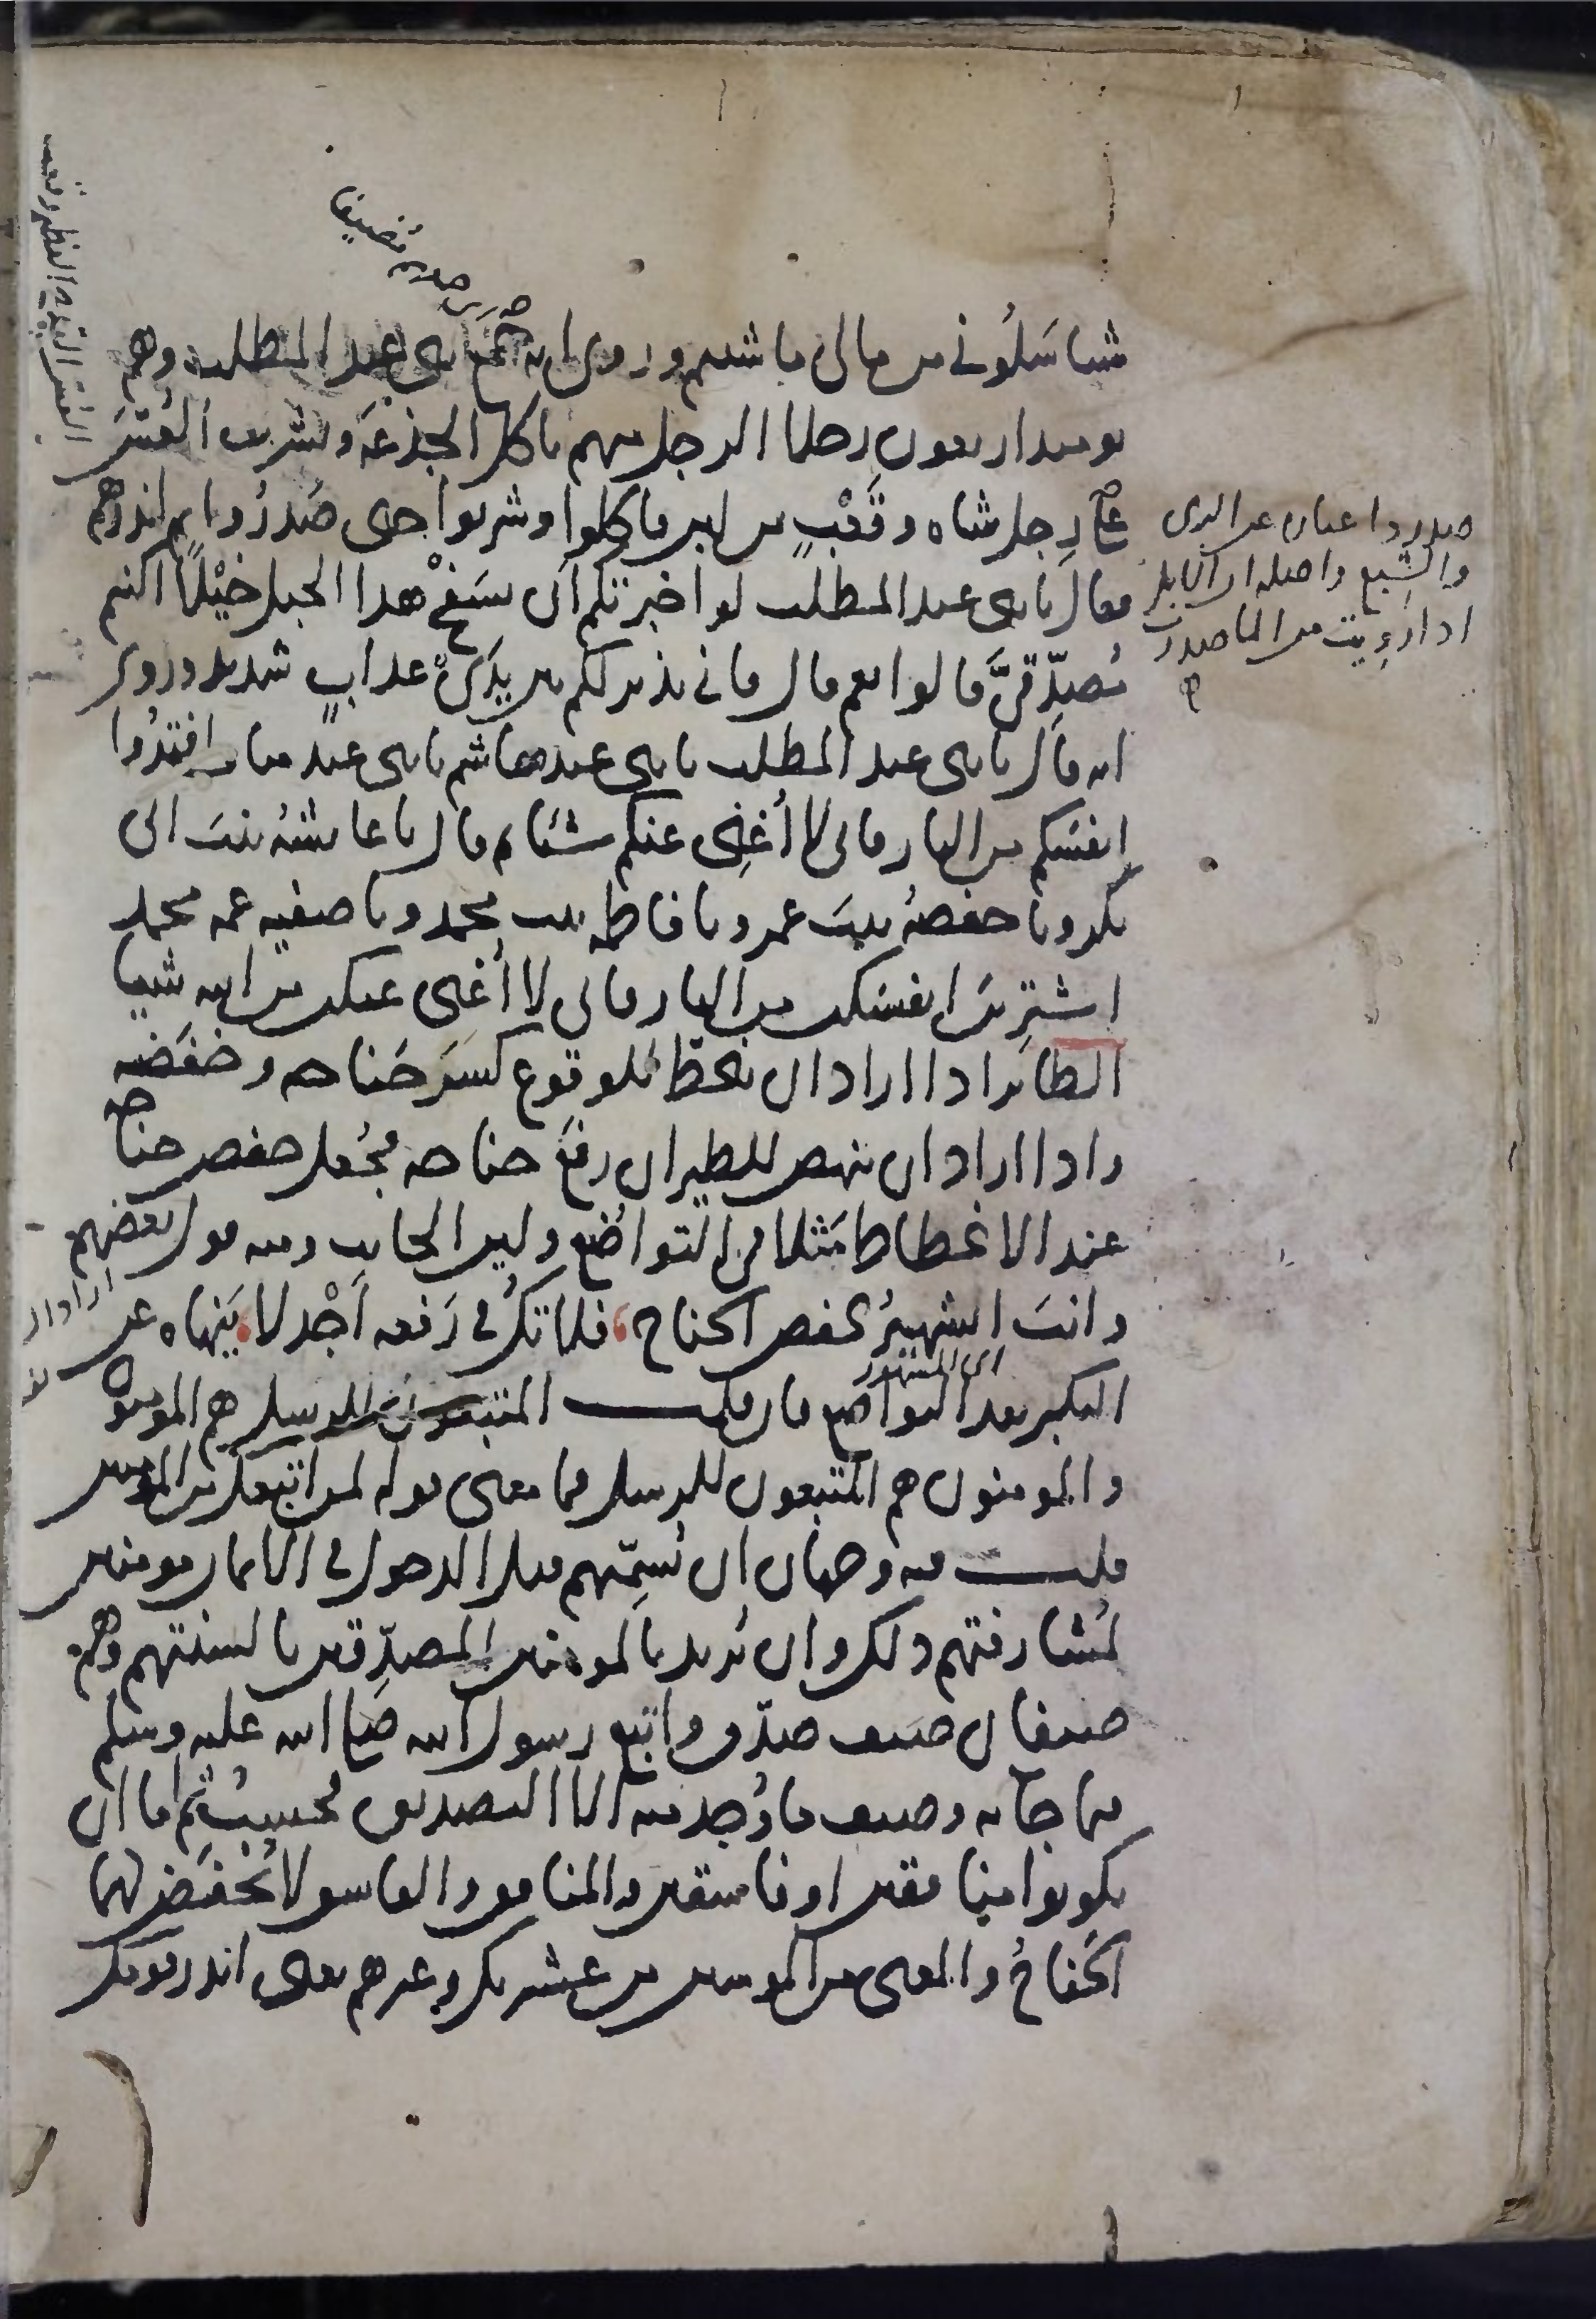 شيا سَلُوني من مالي ما شئتم وروى انه جَمَعَ بنى عبد المطلب وهم
يوميذ اربعون رجلا الرجل منهم ياكل الجذعَة ويشرب العُسَّ
على رِجل شاه وقَعْبٍ من لبن فاكلوا وشربوا حتى صَدَرُوا ثم انذرهم
فقال يا بنى عبد المطلب لو اخبرتكم ان بسَفْح هذا الجبل خَيْلًا اكنتم
مُصَدِّقىَّ قالوا نعم قال فانى نذير لكم بين يدَىْ عذابٍ شديد وروى
انه قال يا بنى عبد المطلب يا بنى هاشم يا بنى عبد مناف افتدُوا
انفسَكم من النار فانى لا أُغنِى عنكم شيئا ثم قال يا عائشةُ بنتَ ابى
بكر ويا حفصةُ بنتَ عمر ويا فاطمه بنت محمد ويا صفيه عمه محمد
اشترِينَ انفسَكن من النار فانى لا أُغنى عنكن من الله شيا
الطائر اذا اراد ان ينحطّ للوقوع كسَرَ جَناحه وخفَضه
واذا اراد ان ينهض للطيران رفَعَ جناحه فجُعل خفض جناحه
عند الانحطاط مَثَلا فى التواضُع ولين الجانب ومنه قول بعضهم
وانتَ الشهيرُ بخفض الجناح، فلا تكُ فى رَفعه أَجْدلا، يَنهاه عن
اى المشهور
التكبر بعد التواضع فان قلت المتبعون للرسل هم المومنون
والمومنون هم المتبعون للرسل فما معنى قوله لمن اتبعك من المومنين
قلت فيه وجهان ان نُسمِّيهم قبل الدخول فى الايمان مومنين
لمُشارفتهم ذلك وان نُريد بالمومنين المصدّقين بالسنتهم وهم
صنفان صنف صدّق واتبع رسول الله صلى الله عليه وسلم
فيما جا به وصنف ما وُجد منه الا التصديق فحسبُ ثم اما ان
يكونوا منافقين او فاسقين والمنافق والفاسق لا تُخفَض لهما
الجَناحُ والمعنى من المومنين من عشيرتك وغيرهم يعنى انذر قومك
صدروا عبارة عن الرى
والشبع واصله ان الابل
اذا رَوِيت من الما صدرت